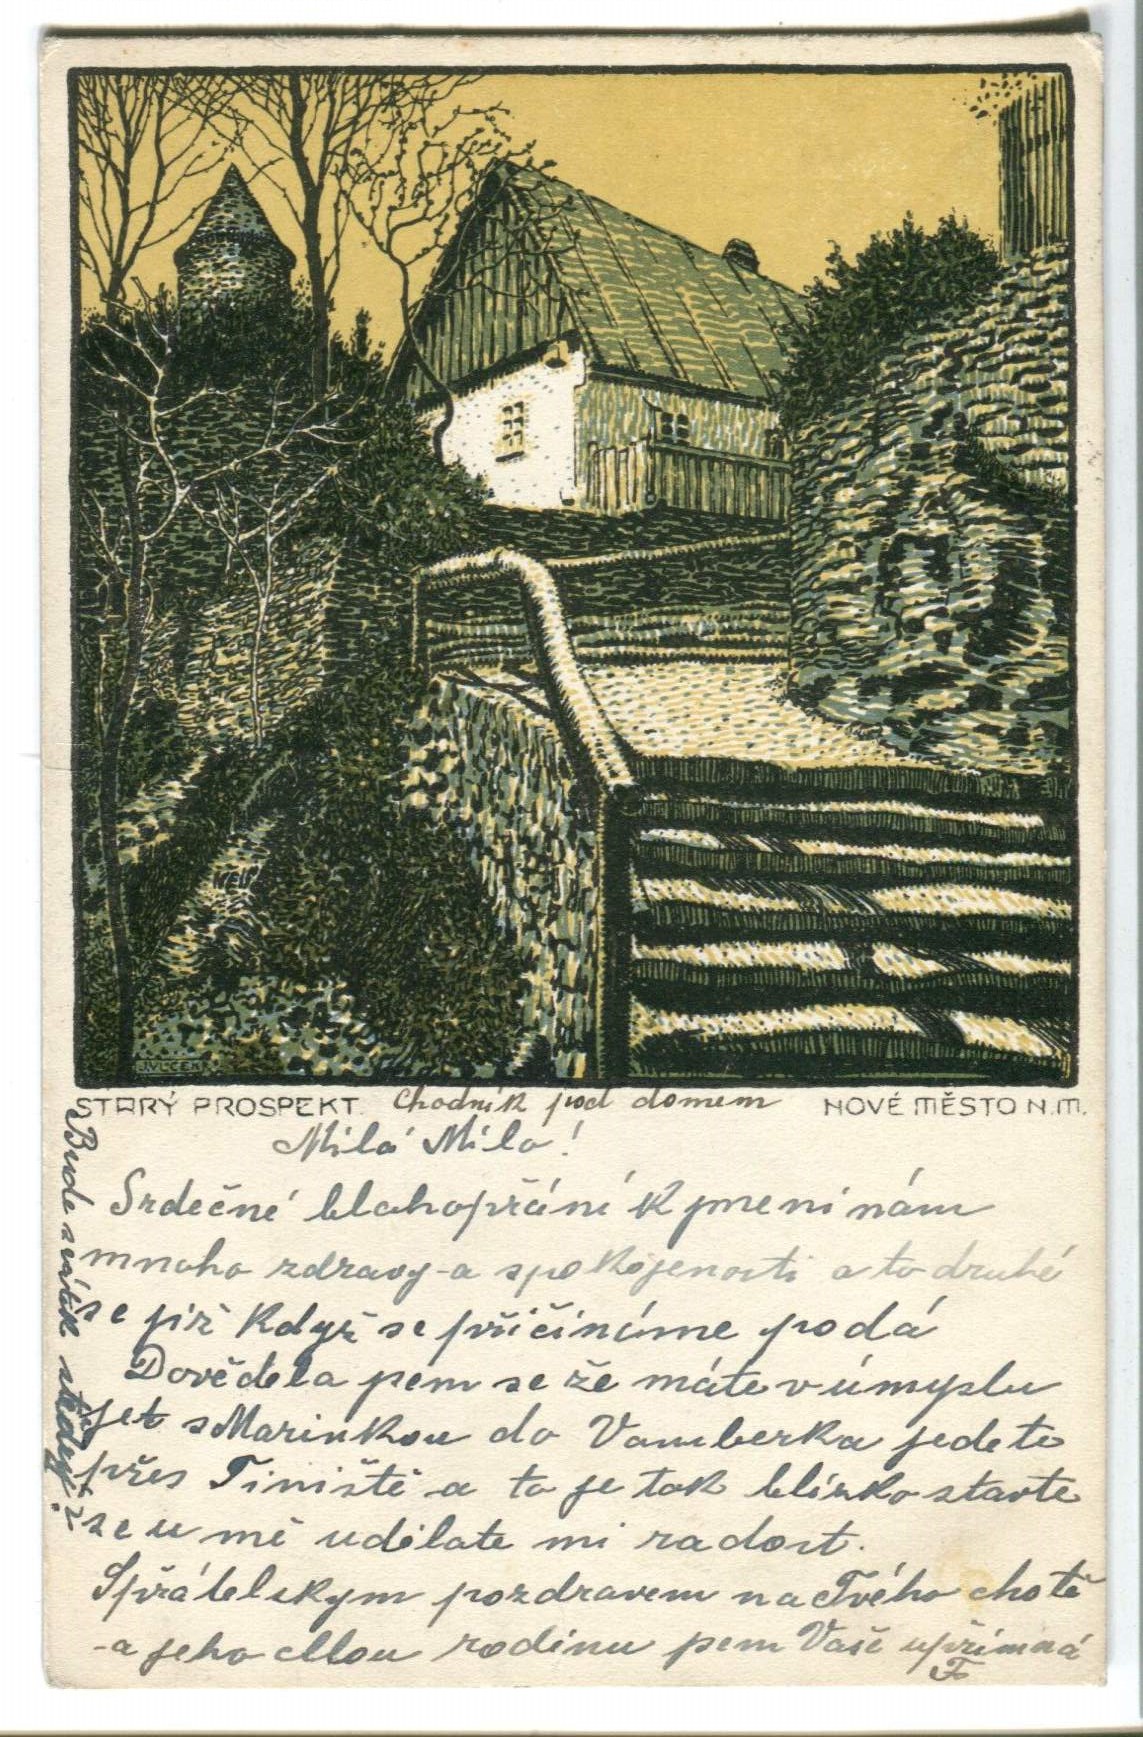 J.VLČEK
STARÝ PROSPEKT. Chodník pod domem NOVÉ MĚSTO N.M.
Milá Mílo!
Srdečné blahopřání k jmeninám
mnoho zdravy a spokojenosti a to druhé
se již když se přičináme podá
Dověděla jsem se že máte v úmyslu
jet s Marinkou do Vamberka jedete
přes Tiniště a to je tak blízko stavte
se u mě udělate mi radost.
S přátelskym pozdravem na Tvého chotě
a jeho cllou rodinu jsem Vaše upřímná
F
Bude svátek tedy?